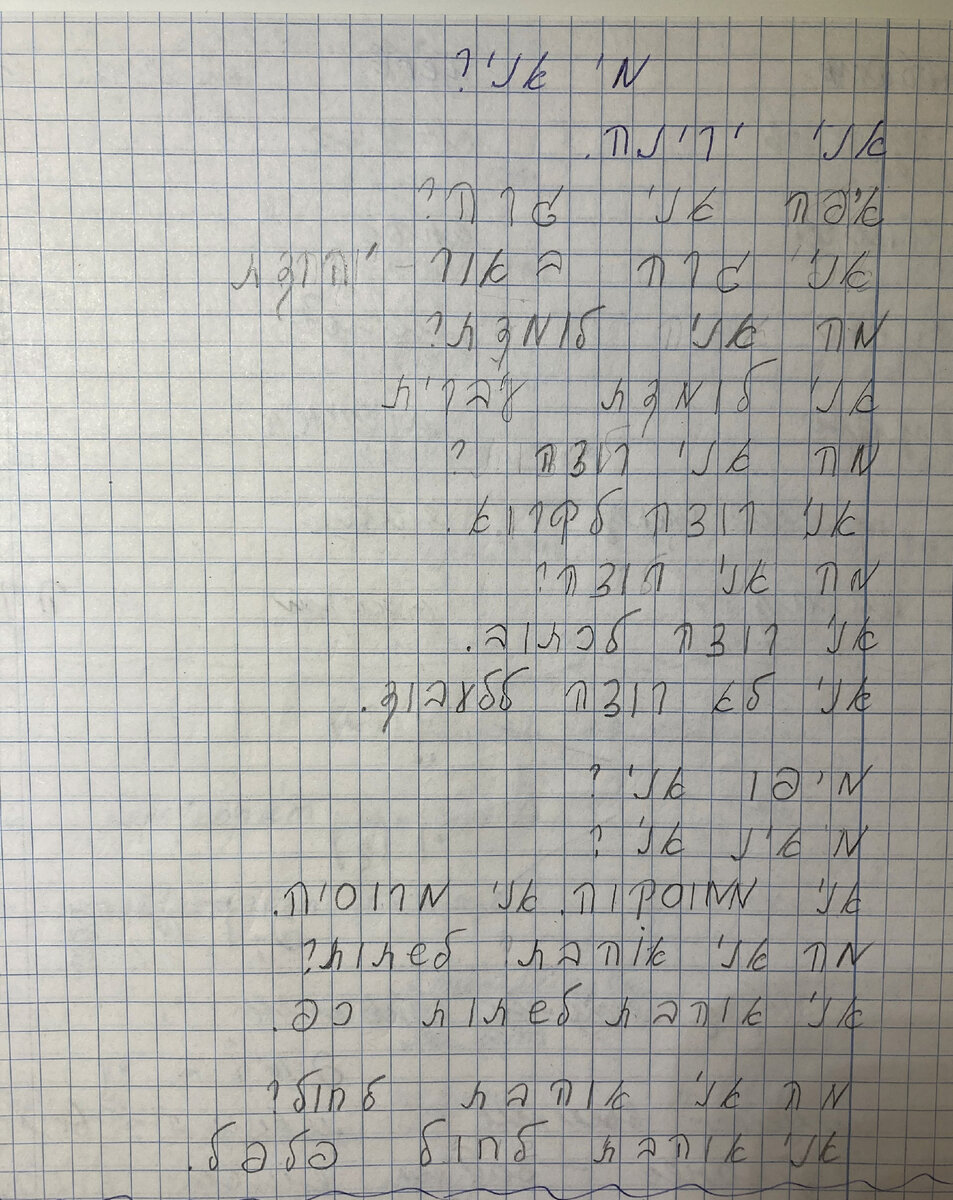 מי אני?
אני ירינה.
איפה אני גרה?
אני גרה באור-יהודה
מה אני לומדת?
אני לומדת עברית
מה אני רוצה?
אני רוצה לקרוא.
מה אני רוצה?
אני רוצה לכתוב.
אני לא רוצה ללעבוד.
מיפו אני?
מאין אני?
אני ממוסקוה. אני מרוסיה.
מה אני אוהבת לשתות?
אני אוהבת לשתות כפ.
מה אני אוהבת לחול?
אני אוהבת לחול פלפל.